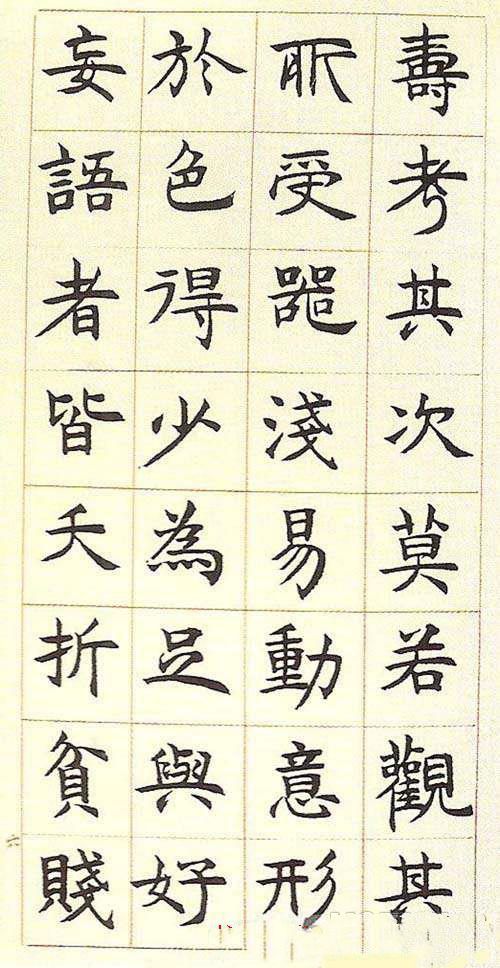 壽考其次莫若觀其
所受噐淺易動意形
於色得少為足與好
妄語者皆夭折貧賤